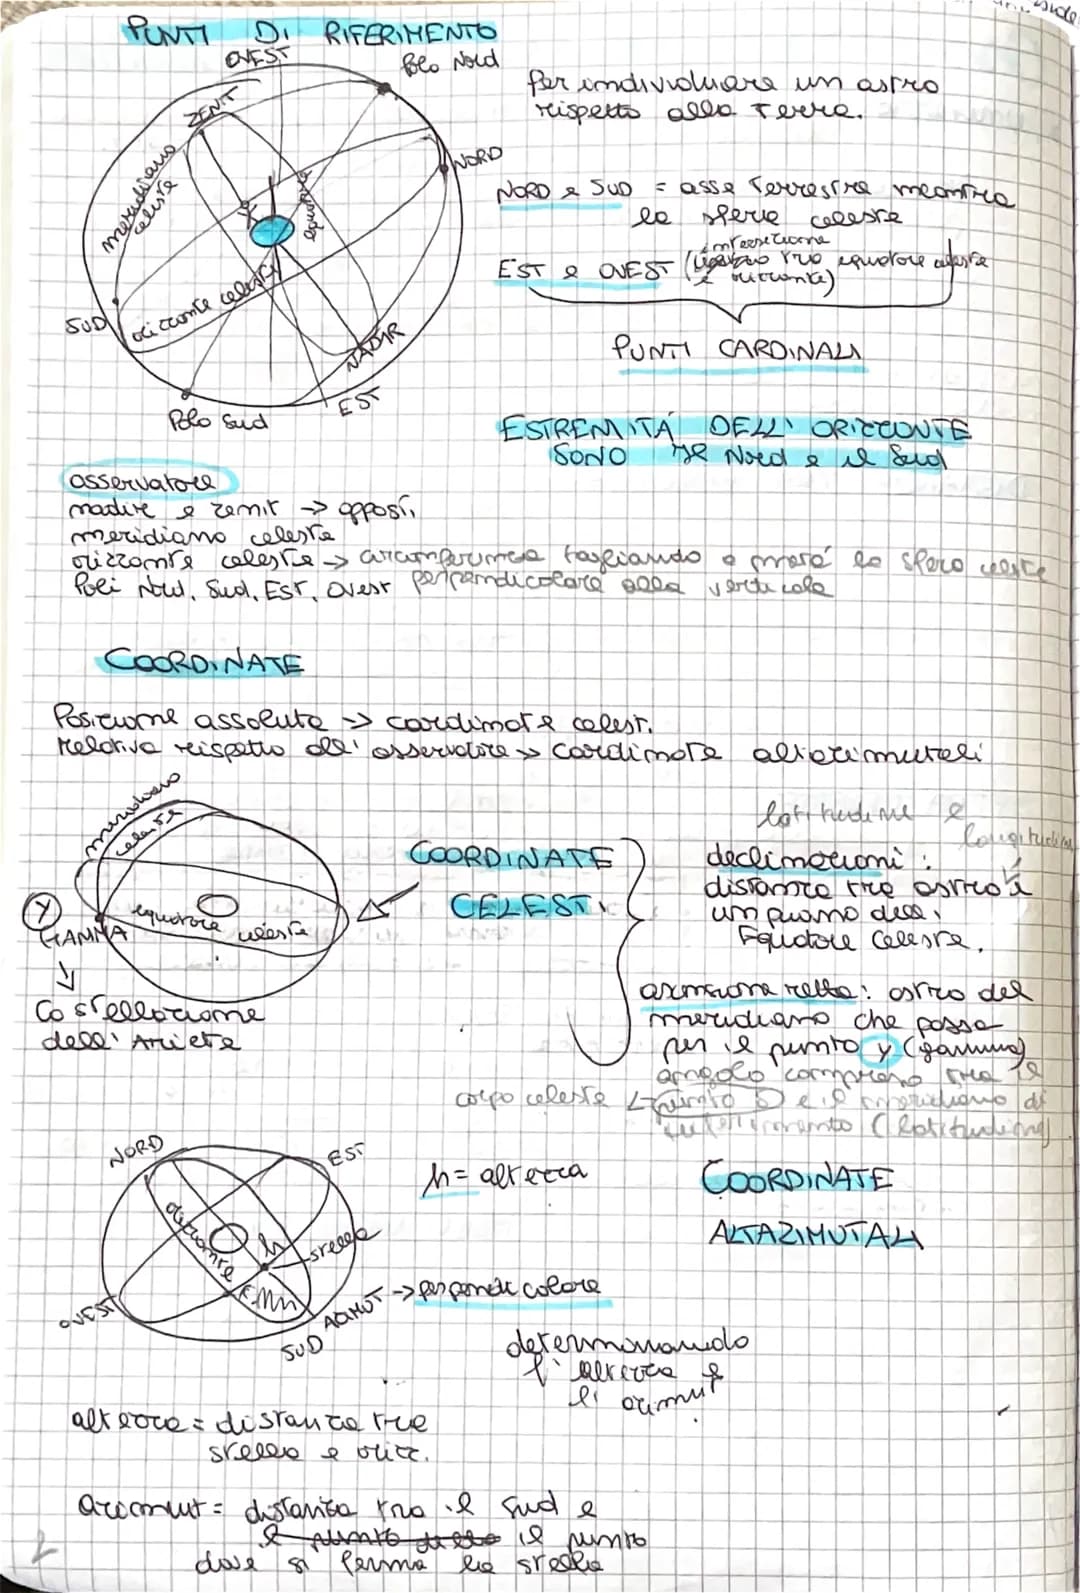 PUNTI DI RIFERIMENTO
OVEST
Polo Nord
ZENIT
NORD
meridiano
celeste
equatore
orizzonte celeste
SUD
NADIR
EST
Polo Sud
Per individuare un astro
rispetto alla Terra.
NORD e SUD = asse Terrestre incontra
la sfera celeste
intersezione
EST e OVEST ( tra equatore celeste
e orizzonte)
PUNTI CARDINALI
ESTREMITÁ DELL' ORIZZONTE
SONO il Nord e il Sud
osservatore
nadire e zenit -> opposti
meridiano celeste
orizzonte celeste -> circonferenza tagliando a metá la sfera celeste
Poli Nord, Sud, Est, Ovest perpendicolare alla verticale
COORDINATE
Posizione assoluta -> cordinate celesti.
Relativa rispetto all' osservatore -> cordinate altazimutali
meridiano
celeste
equatore celeste
γ
GAMMA
Costellazione
dell' Ariete
COORDINATE
CELESTI
latitudine e
longitudine
declinazioni :
distanza tra astro e
un piano dell'
Equatore Celeste.
ascensione retta: astro del
meridiano che passa
per il punto γ (gamma)
angolo compreso tra il
corpo celeste punto e il meridiano di
riferimento (latitudine)
NORD
EST
orizzonte
h
stella
OVEST
SUD
AZIMUT -> perpendicolare
h = altezza
COORDINATE
ALTAZIMUTALI
determinando
l' altezza e
l' azimut
altezza = distanza tra
stella e orizz.
azimut = distanza tra il Sud e
il punto della il punto
dove si ferma la stella
2